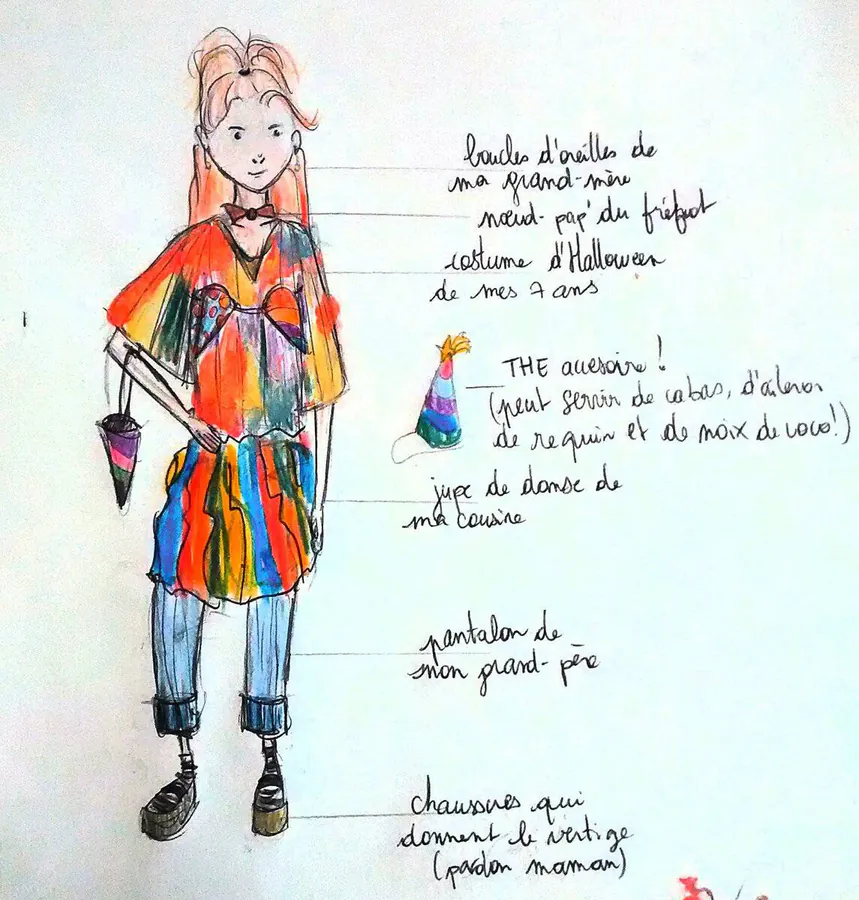 boucles d'oreilles de
ma grand-mère
nœud-pap' du frérot
costume d'Halloween
de mes 7 ans
THE accesoire !
(peut servir de cabas, d'aileron
de requin et de noix de coco !)
jupe de danse de
ma cousine
pantalon de
mon grand-père
chaussures qui
donnent le vertige
(pardon maman)